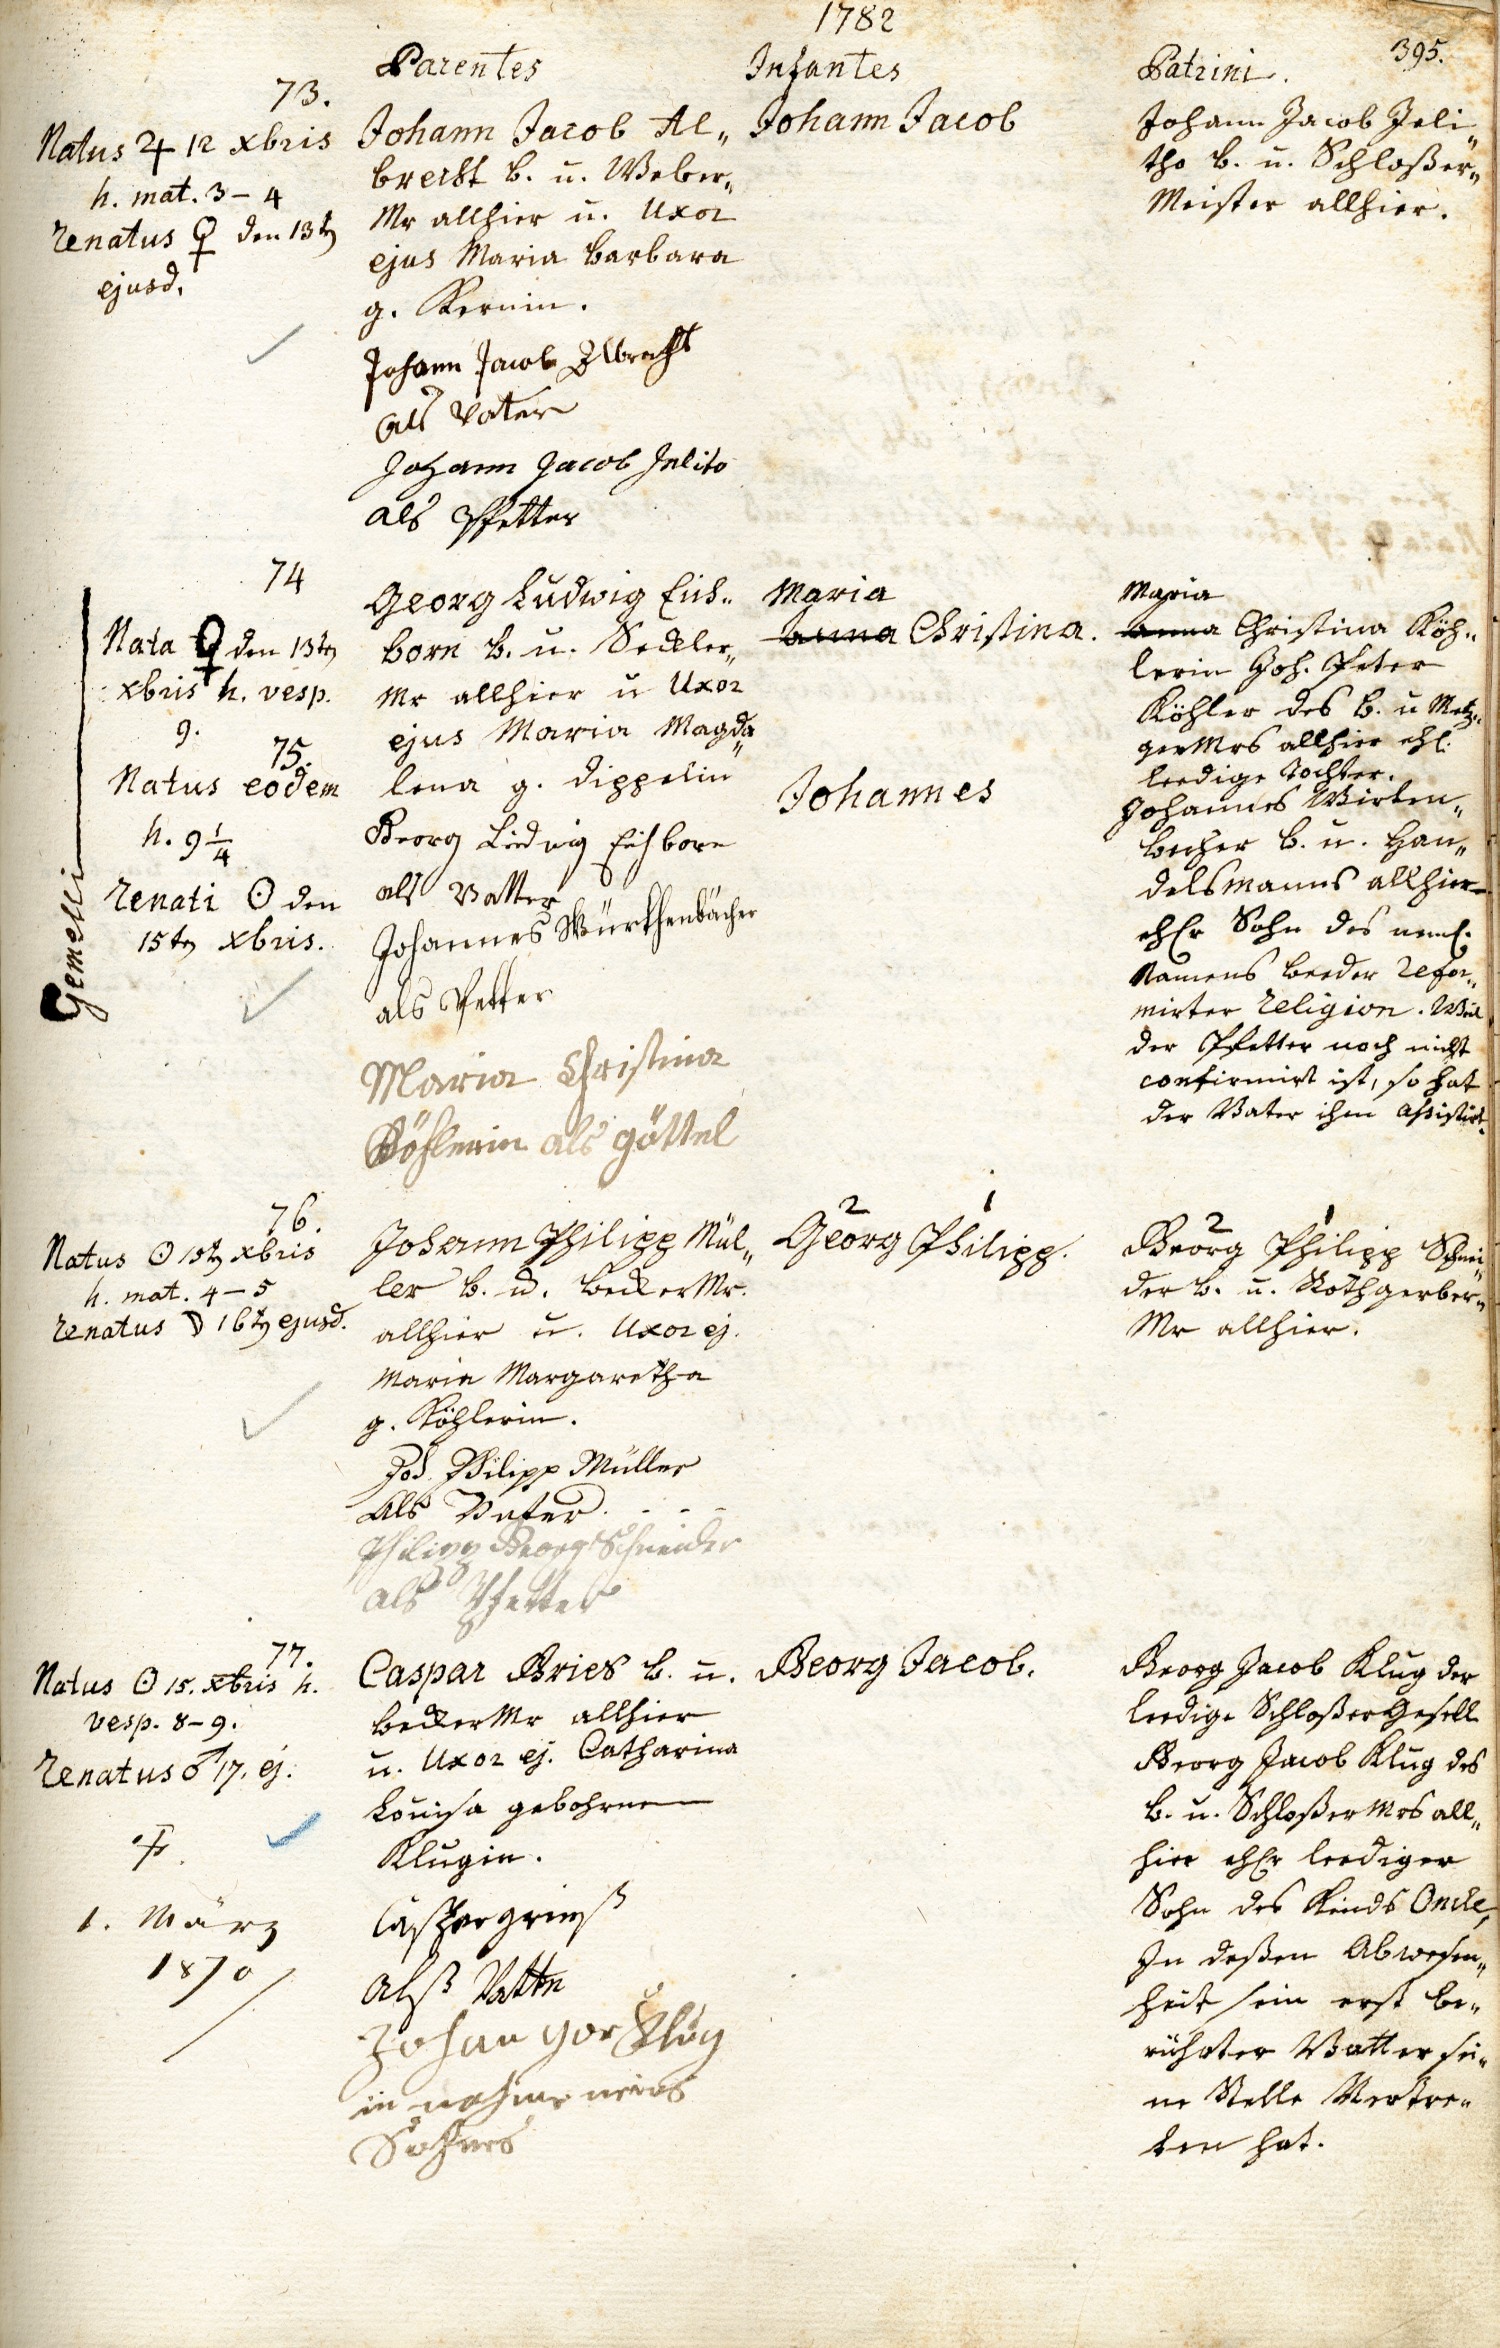 1782
395.
Parentes
Infantes
Patrini.
73.
Natus ♃ 12 Xbris
h. mat. 3 – 4
renatus ♀ den 13tn
ejusd.
Johann Jacob Al„
brecht b. u. Weber„
Mr allhier u. Uxor
ejus Maria Barbara
g. Kernin.
Johann Jacob Albrecht
als Vater
Johann Jacob Jelito
als Pfetter
Johann Jacob
Johann Jacob Jeli„
tho b. u. Schloßer„
Meister allhier.
Gemelli
74
Nata ♀ den 13tn
Xbris h. vesp.
9.
75.
Natus eodem
h. 9 1/4
renati ☉ den
15tn Xbris.
Georg Ludwig Eich„
born b. u. Seckler„
Mr allhier u Uxor
ejus Maria Magda„
lena g. Dippelin
Georg Ludwig Eichborn
als Vatter
Johannes Würthenbächer
als Petter
Maria Christina
Köhlerin als göttel
Maria
Anna Christina.
Johannes
Maria
Anna Christina Köh„
lerin Joh. Peter
Köhler des b. u Metz„
gerMrs allhier ehl.
leedige Tochter.
Johannes Wirten„
becher b. u. Han„
delsmanns allhier
ehlr Sohn des neml.
Namens beeder refor„
mirter religion. Weil
der Pfetter noch nicht
confirmirt ist, so hat
der Vater ihm assistirt.
76.
Natus ☉ 15tn Xbris
h. mat. 4 – 5
renatus ☽ 16tn ejusd.
Johann Philipp Mül„
ler b. u. BeckerMr.
allhier u. Uxor ej.
Maria Margaretha
g. Köhlerin.
Joh. Philipp Müller
als Vater. - - -
Philipp Georg Schneider
als Pfetter
2 1
Georg Philipp.
2 1
Georg Philipp Schnei„
der b. u. Rothgerber„
Mr allhier.
77.
Natus ☉ 15. Xbris h.
vesp. 8 – 9.
renatus ♂ 17. ej.
1. März
1870
Caspar Gries b. u.
BeckerMr allhier
u. Uxor ej. Catharina
Louisa gebohrne
Klugin.
Casper grieß
alß Vatter
Johan Gor Klug
in nahme meines
Sohnes
Georg Jacob.
Georg Jacob Klug der
leedige SchloßerGesell
Georg Jacob Klug des
b. u. SchloßerMrs all„
hier ehlr leediger
Sohn des Kinds Oncle,
In deßen Abwesen„
heit sein erst be„
rührter Vatter sei„
ne Stelle Vertre„
ten hat.